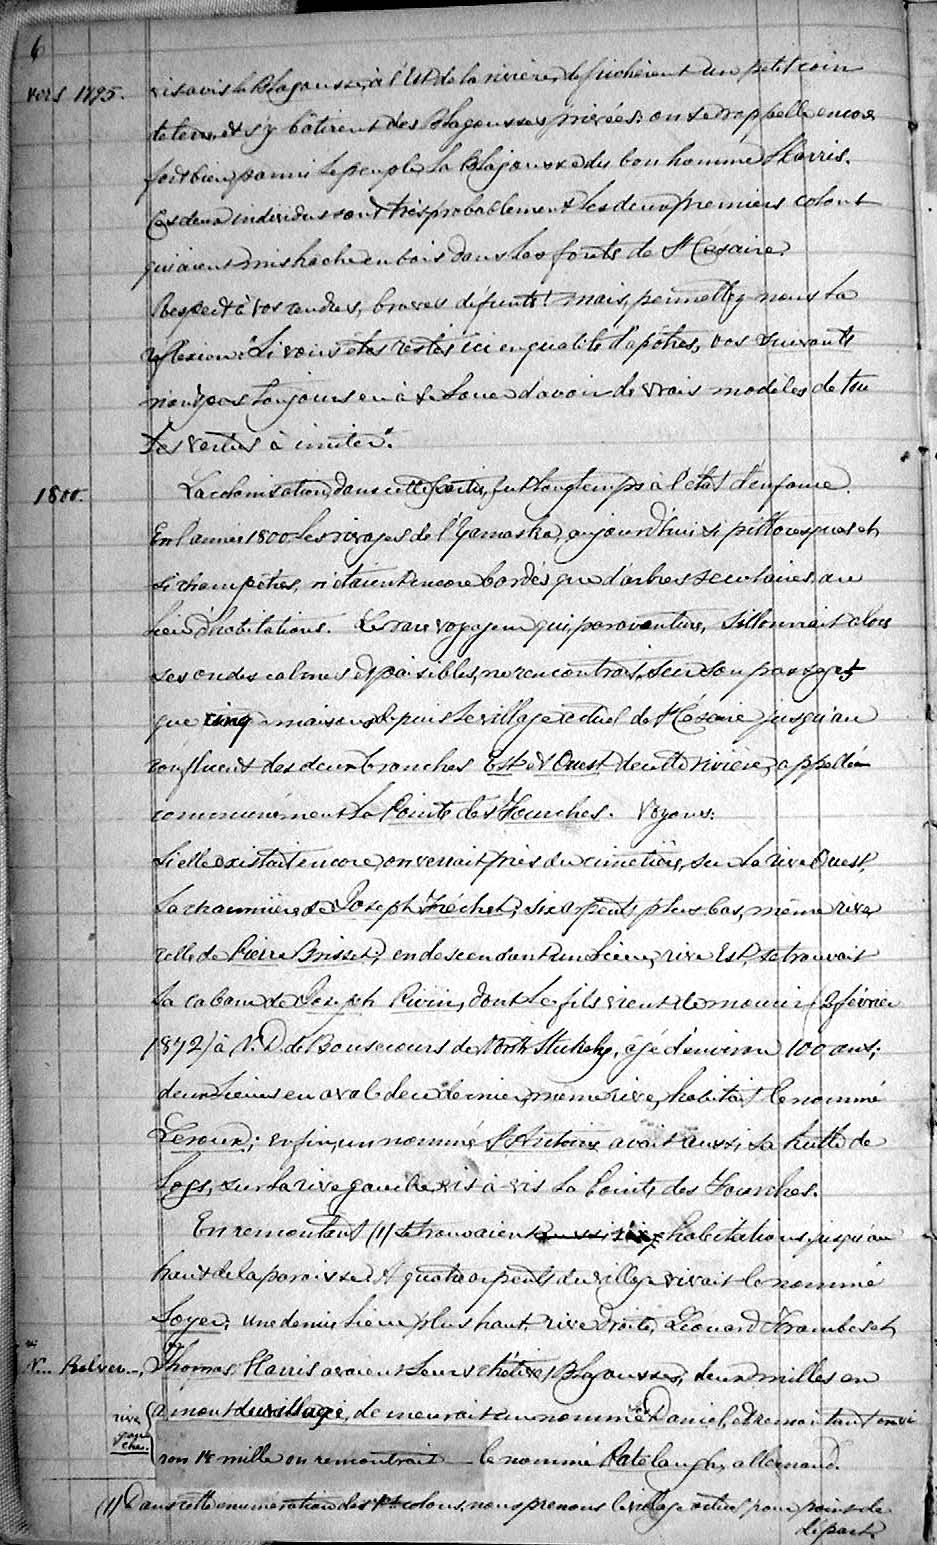 6
vers 1795. vis à vis la Blagousse, à l'Est de la rivière, défrichèrent un petit coin
de terre, et s'y bâtirent des Blagousses privées: on se rappelle encore
fort bien parmi le peuple la Blagousse du bon homme Harris.
Ces deux individus sont très probablement les deux premiers colons
qui aient mis hache en bois dans les forêts de St Césaire.
Respect à vos cendres, braves défunts! mais, permettez-nous la
réflexion: "Si vous êtes restés ici en qualité d'apôtres, vos suivants
n'ont pas toujours eu à se louer d'avoir de vrais modèles de tou
tes vertus à imiter".
1800. La colonisation, dans cette partie, fut longtemps à l'état d'enfance.
En l'année 1800 les rivages de l'Yamaska, aujourd'hui si pittoresques et
si champêtres, n'étaient encore bordés que d'arbres séculaires, au
lieu d'habitations. Le rare voyageur qui, par aventure, sillonnait alors
ses ondes calmes et paisibles, ne rencontrait, sur son passage,
que cinq maisons depuis le village actuel de St Césaire jusqu'au
confluent des deux branches Est et Ouest de cette rivière, appellée
communément la Pointe des Fourches. Voyons:
Si elle existait encore, on verrait près du cimetière, sur la rive Ouest,
la chaumière de Joseph Fréchet; six arpents plus bas, même rive
celle de Pierre Brisset; en descendant une lieue, rive Est, se trouvait
la cabane de Joseph Rivin, dont le fils vient de mourir (2 février
1872) à N. D. de Bonsecours de North Stukely, âgé d'environ 100 ans;
deux lieues en aval de ce dernier, même rive, habitait le nommé
Leroux; enfin, un nommé St Antoine avait aussi sa hutte de
logs, sur la rive gauche, vis à vis la Pointe des Fourches.
En remontant (1) se trouvaient habitations jusqu'au
haut de la paroisse. A quatre arpents du village vivait le nommé
Loyer; une demie lieue plus haut, rive droite, Léonard Frambes et
Thomas Harris avaient leurs chétives Blagousses, deux milles en
amont du village, demeurait un nommé Daniel, et remontant envi
rive gauche. ron 1½ mille on rencontrait le nommé Ratelaugh, allemand.
(1) Dans cette énumération des colons, nous prenons le village actuel pour point de
départ.